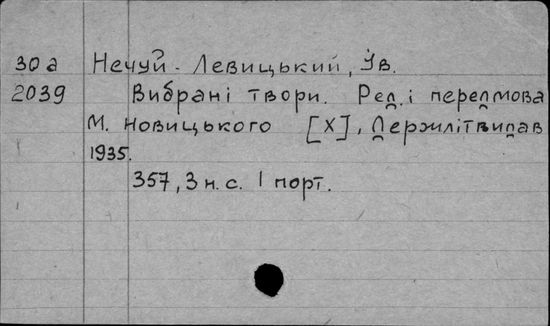 30а Нечуй-Левицький, Ів.
2039 Вибрані твори. Ред. і передмова
М. Новицького [Х], Держлітвидав
1935.
357, 3 н. с. 1 порт.